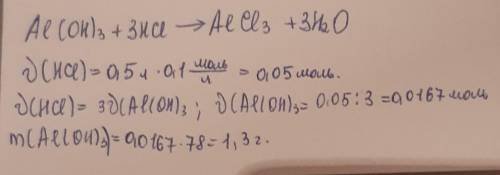 Al(OH)3 + 3HCl → AlCl3 + 3H2O
ν(HCl) = 0,5 л · 0,1 моль/л = 0,05 моль.
ν(HCl) = 3ν(Al(OH)3 ; ν(Al(OH)3 = 0,05 : 3 = 0,0167 моль
m(Al(OH)3) = 0,0167 · 78 = 1,3 г.